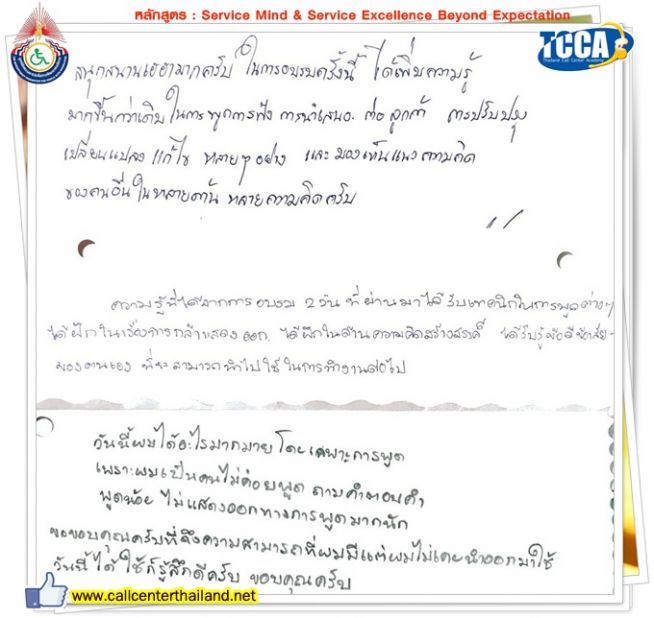 หลักสูตร : Service Mind & Service Excellence Beyond Expectation
TCCA
Thailand Call Center Academy
สนุกสนานเฮฮามากครับ ในการอบรมครั้งนี้ ได้เพิ่มความรู้
มากขึ้นกว่าเดิม ในการพูดการฟัง การนำเสนอ ต่อ ลูกค้า การปรับปรุง
เปลี่ยนแปลง แก้ไข หลายๆ อย่าง และ มองเห็นแนวความคิด
ของคนอื่น ในหลายด้าน หลายความคิดครับ
ความรู้ที่ได้จากการ อบรม 2 วัน ที่ผ่านมา ได้รับเทคนิคในการพูดต่างๆ
ได้ฝึกในเรื่องการกล้าแสดงออก ได้ฝึกในด้านความคิดสร้างสรรค์ ได้รับรู้ข้อดีข้อเสีย
ของตนเอง ที่จะสามารถนำไปใช้ ในการทำงานต่อไป
วันนี้ผมได้อะไรมากมาย โดยเฉพาะการพูด
เพราะผมเป็นคนไม่ค่อยพูด ถามคำตอบคำ
พูดน้อย ไม่แสดงออกทางการพูดมากนัก
ขอขอบคุณครับที่ดึงความสามารถที่ผมมีแต่ผมไม่เคยนำออกมาใช้
วันนี้ได้ ใช้ก็รู้สึกดีครับ ขอบคุณครับ
www.callcenterthailand.net